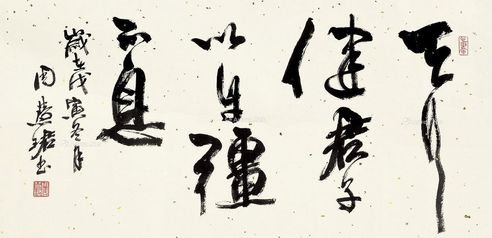 天行
健君子
以自彊
不息
歲在戊寅冬月
周慧珺书